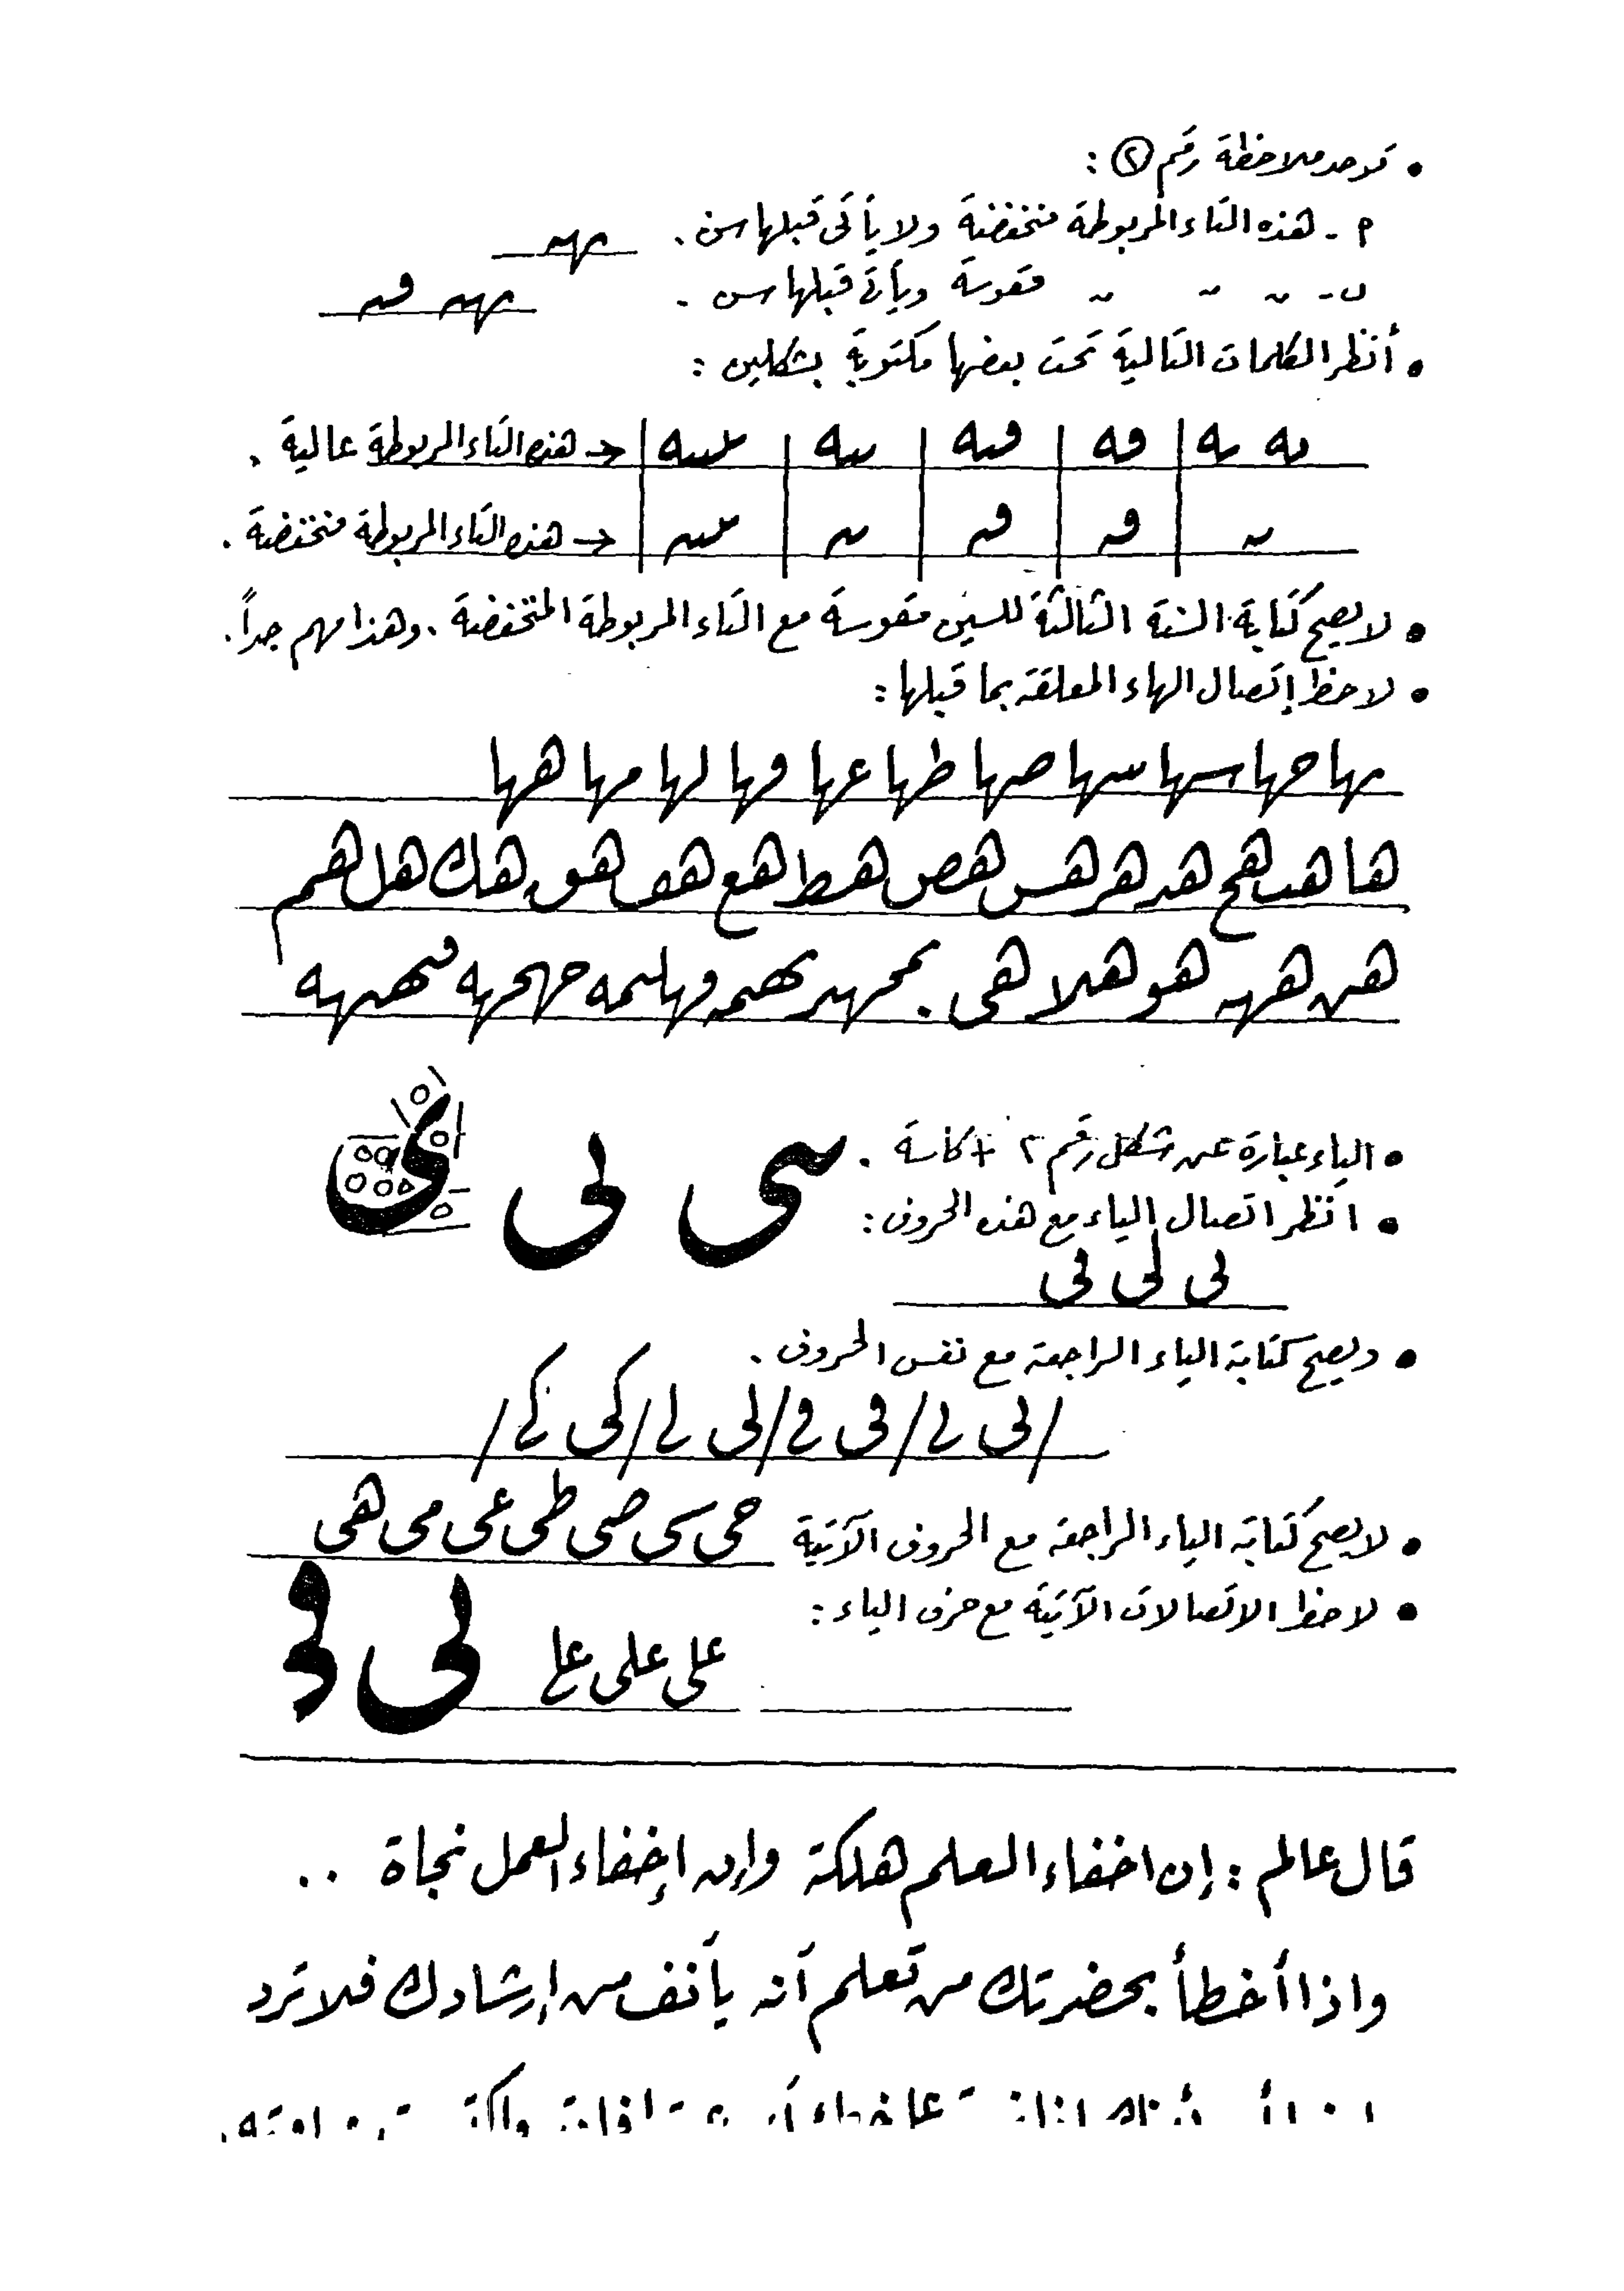 • توجد ملاحظة رقم ٢ :
أ - هذه التاء المربوطة منخفضة ولا يأتي قبلها سن . نهه
ب - " " " مقوسة ويأتي قبلها سن .
• أنظر الكلمات التالية تحت بعضها مكتوبة بشكلين :
← هذه التاء المربوطة عالية .
← هذه التاء المربوطة منخفضة .
• لا يصح كتابة السنة الثالثة للسين مقوسة مع التاء المربوطة المنخفضة . وهذا مهم جداً .
• لاحظ إتصال الهاء المعلقة بما قبلها :
بها حها سها سها صها طها عها فها لها مها هها
ها هب هح هد هر هس هص هط هع هف هق هك هل هم
هن ههه هو هلا هي
• الياء عبارة عن شكل رقم ٢ + كاسة . سى لى ى
• انظر اتصال الياء مع هذه الحروف :
لى لى فى
• ويصح كتابة الياء الراجعة مع نفس الحروف .
/ لى لے / فى فے / لى لے / كى كے /
• لا يصح كتابة الياء الراجعة مع الحروف الآتية حى سى صى طى عى مى هى
• لاحظ الاتصالات الآتية مع حرف الياء :
على على علے لى
قال عالم : إن اخفاء العلم هلكة وإن إخفاء العمل نجاة ..
واذا أخطأ بحضرتك من تعلم أنه يأنف من إرشادك فلا ترد